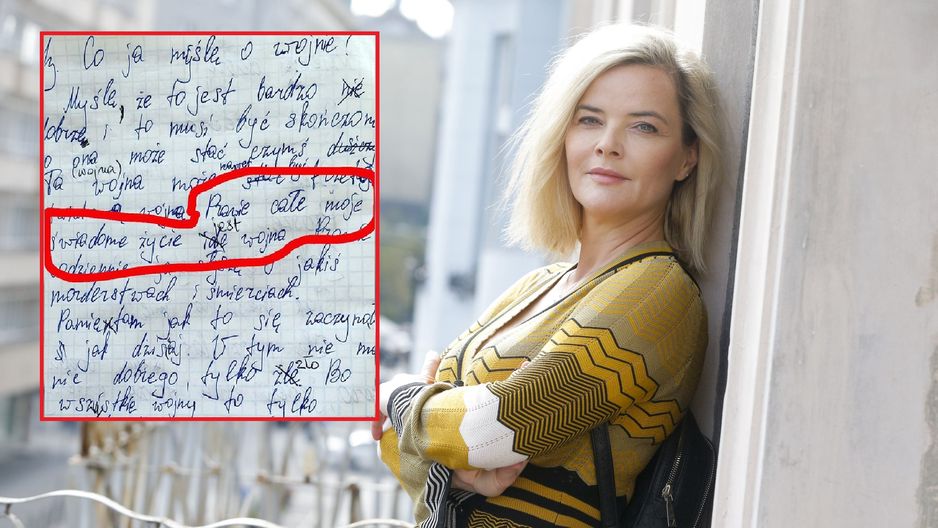 Co ja myślę o wojnie?
Myślę, że to jest bardzo nie
dobrze, i to musi być skończon
ona może stać czymś
(wojna)
Ta wojna może nawet być
wojna. Prawie całe moje
świadome życie jest wojna
jakiś
morderstwach i śmierciach.
Pamiętam jak to się zaczynał
i jak dzisiaj. W tym nie ma
nic dobrego, tylko zło Bo
wszystkie wojny to tylko